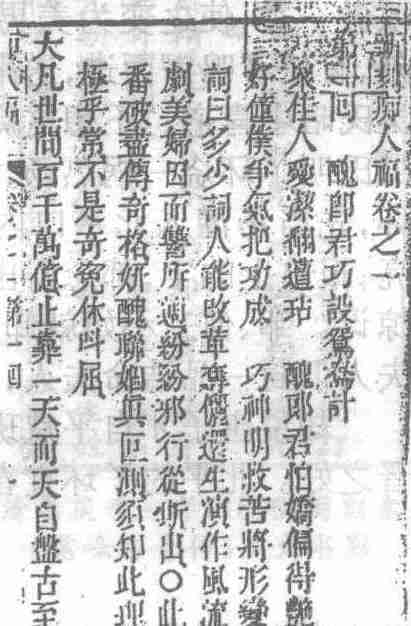 新刻痴人福卷之一
第一回　醜郎君巧設鴛鴦計
衆佳人愛潔翻遭玷　醜郎君怕嬌偏得艷
好僮僕爭氣把功成　巧神明救苦將形變
詞曰多少詞人能改革奪儷還生演作風流
劇美婦因而讐所適紛紛邪行從斯出○此
番破盡傳奇格妍醜聯姻眞叵測須知此理
極乎常不是奇冤休呌屈
大凡世間百千萬億止靠一天而天自盤古至
人福　卷之一第一回